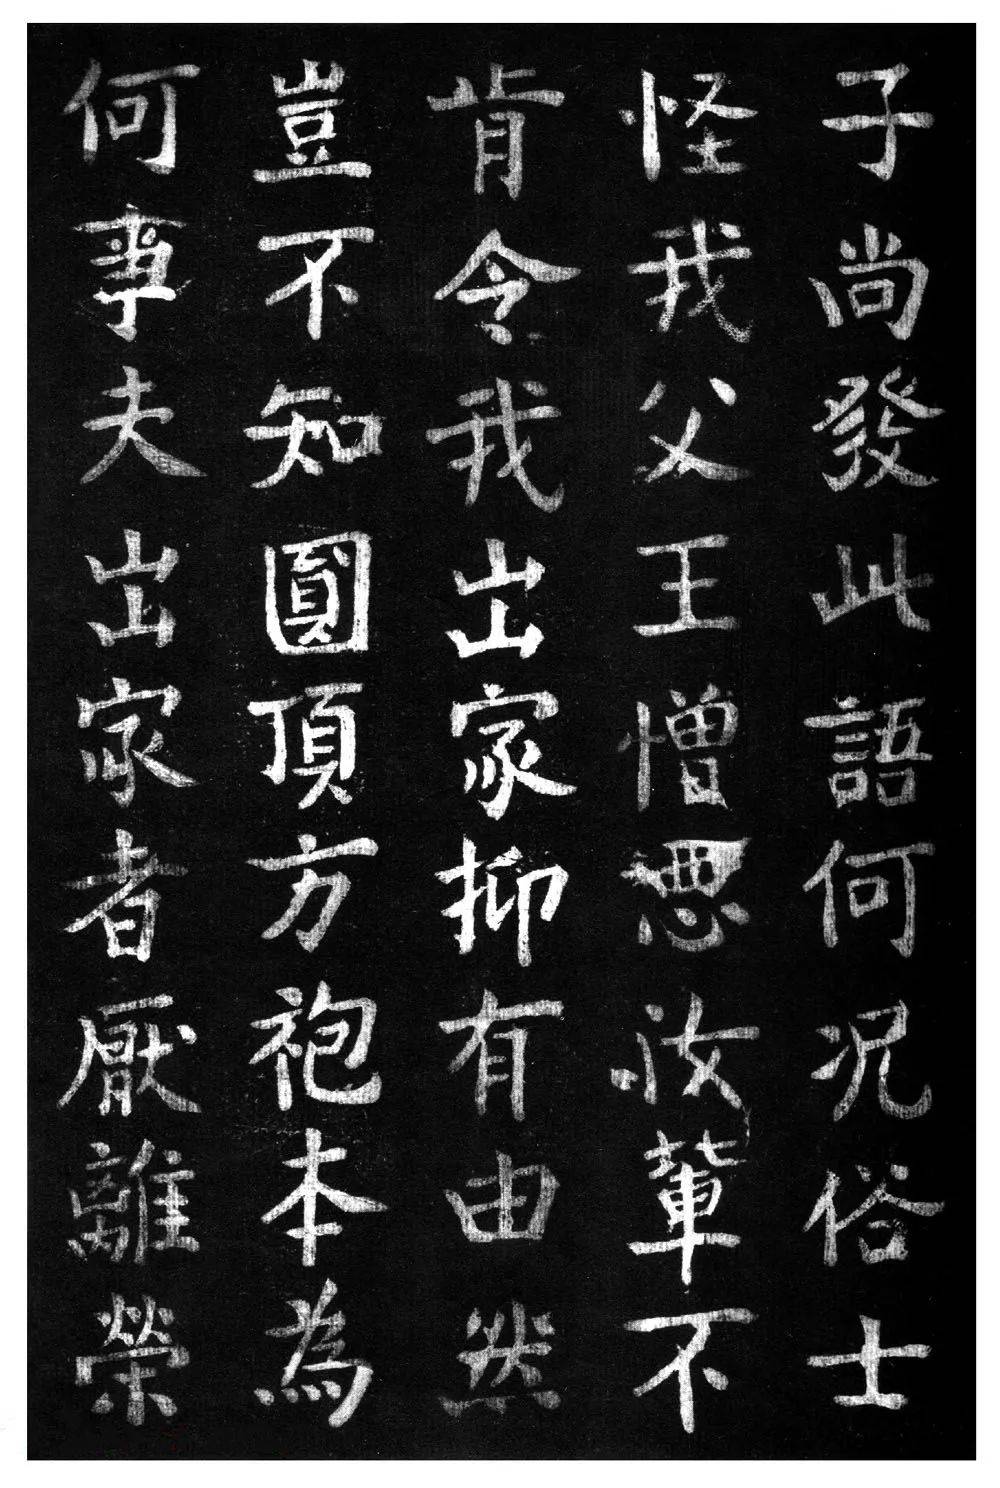 子尚發此語何况俗士
怪我父王憎惡汝輩不
肯令我出家抑有由然
豈不知圓頂方袍本為
何事夫出家者厭離榮